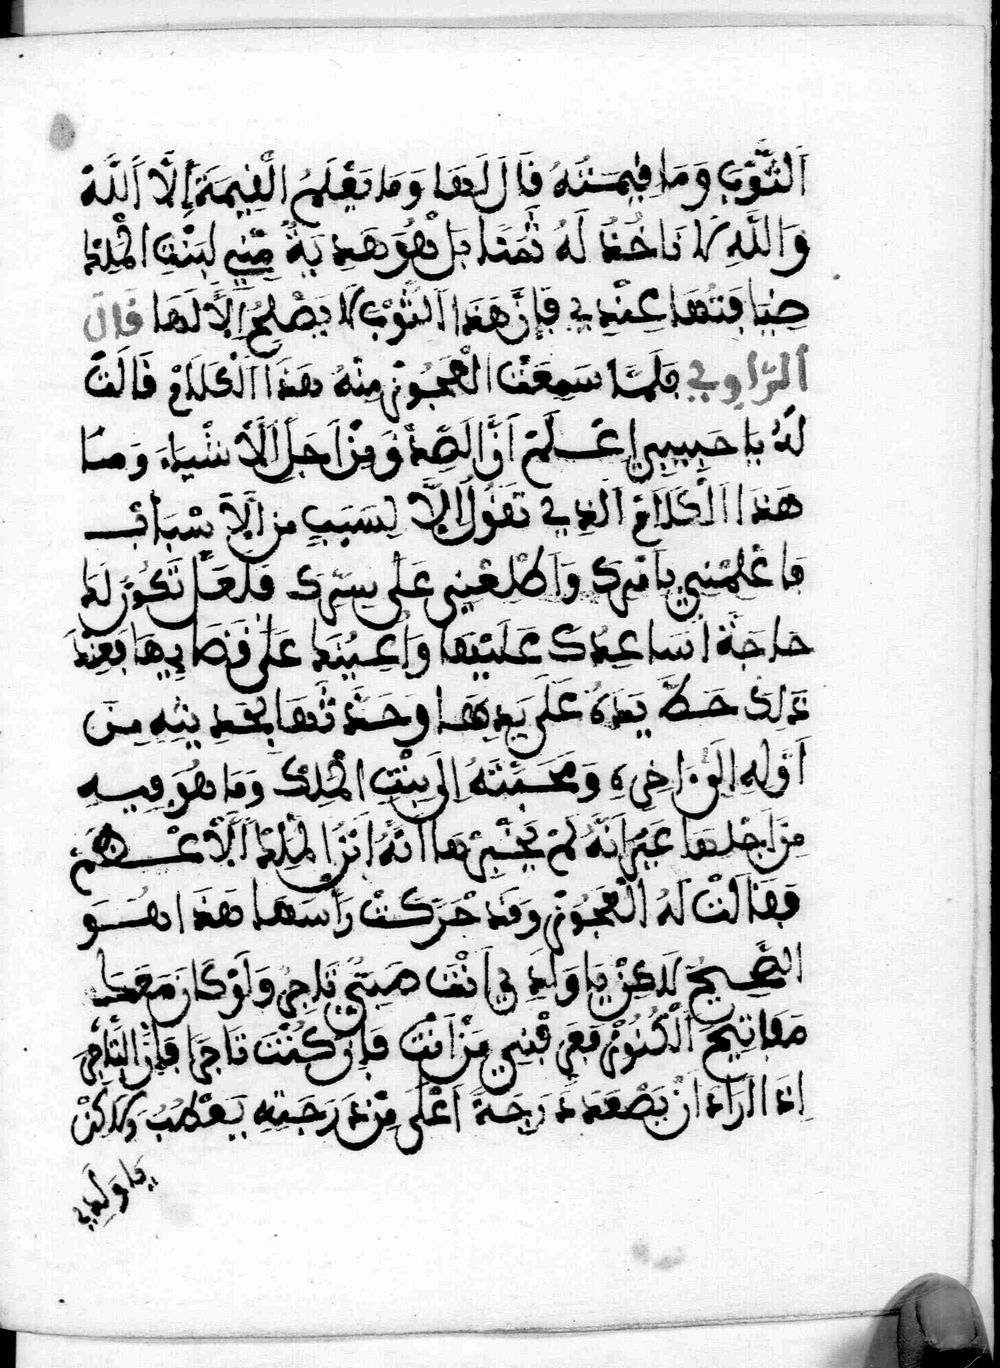 اَلثَّوْبِ وَمَا قِيمَتُهُ قَالَ لَهَا وَمَا يَعْلَمُ الْقِيمَةَ إِلَّا اَللَّهْ
وَاللَّهِ لَا نَاخُذُ لَهُ ثَمَنًا بَلْ هُوَ هَدِيَةٌ مِّنِّي لِبَنْتِ الْمَلِكْ
ضِيَافَتُهَا عِنْدِي فَإِنَّ هَذَا اَلثَّوْبَ لَا يَصْلُحُ اِلَّا لَهَا قَالَ
اَلرَّاوِي فَلَمَّا سَمِعَتْ الْعَجُوزْ مِنْهُ هَذَا اَلْكَلَامْ قَالَتْ
لَهُ يَا حَبِيبِي اِعْلَمْ اَنَّ الصِّدْقَ مِنْ اَجَلِّ اَلْأَشْيَاءِ وَمَا
هَذَا اَلْكَلَامْ اَلذِي تَقُولْ اِلَّا لِسَبَبٍ مِنَ اَلْأَسْبَابْ
فَاعْلِمْنِي بِاَمْرِكَ وَاطْلِعْنِي عَلَى سِرِّكَ فَلَعَلَّ تَكُونْ لَكَ
حَاجَةْ اُسَاعِدُكَ عَلَيْهَا وَاُعِينُكَ عَلَى قَضَايِهَا فَعِنْدَ
ذَلِكَ حَطَّ يَدَهُ عَلَى يَدِهَا وَحَدَّثَهَا بِحَدِيثِهِ مِنْ
اَوَّلِهِ اِلَى اَخِرِهِ وَمَحَبَّتَهُ اِلَى بِنْتِ الْمَلِكْ وَمَا هُوَ فِيهِ
مِنْ اَجْلِهَا غَيْرَ اَنَّهُ لَمْ يُخْبِرْهَا اَنَّهُ اِبْنُ الْمَلِكْ اَلْأَعْظَمْ
فَقَالَتْ لَهُ الْعَجُوزْ وَقَدْ حَرَكَتْ رَأْسَهَا هَذَا هُوَ
الصَّحِيحُ لَكِنْ يَا وَلَدِي اَنْتَ صَبِيٌّ تَاجِرٌ وَلَوْ كَانَ مَعَكَ
مَفَاتِيحَ اَلْكُنُوزْ فَعَرِّفْنِي مَنْ اَنْتَ فَإِنْ كُنْتَ تَاجِرًا فَإِنَّ التَّاجِرَ
اِذَا اَرَادَ اَنْ يَصْعَدَ دَرَجَةً اَعْلَى مِنْ دَرَجَتِهِ يَعْطَبُ وَلَكِنْ
يَا وَلَدِي